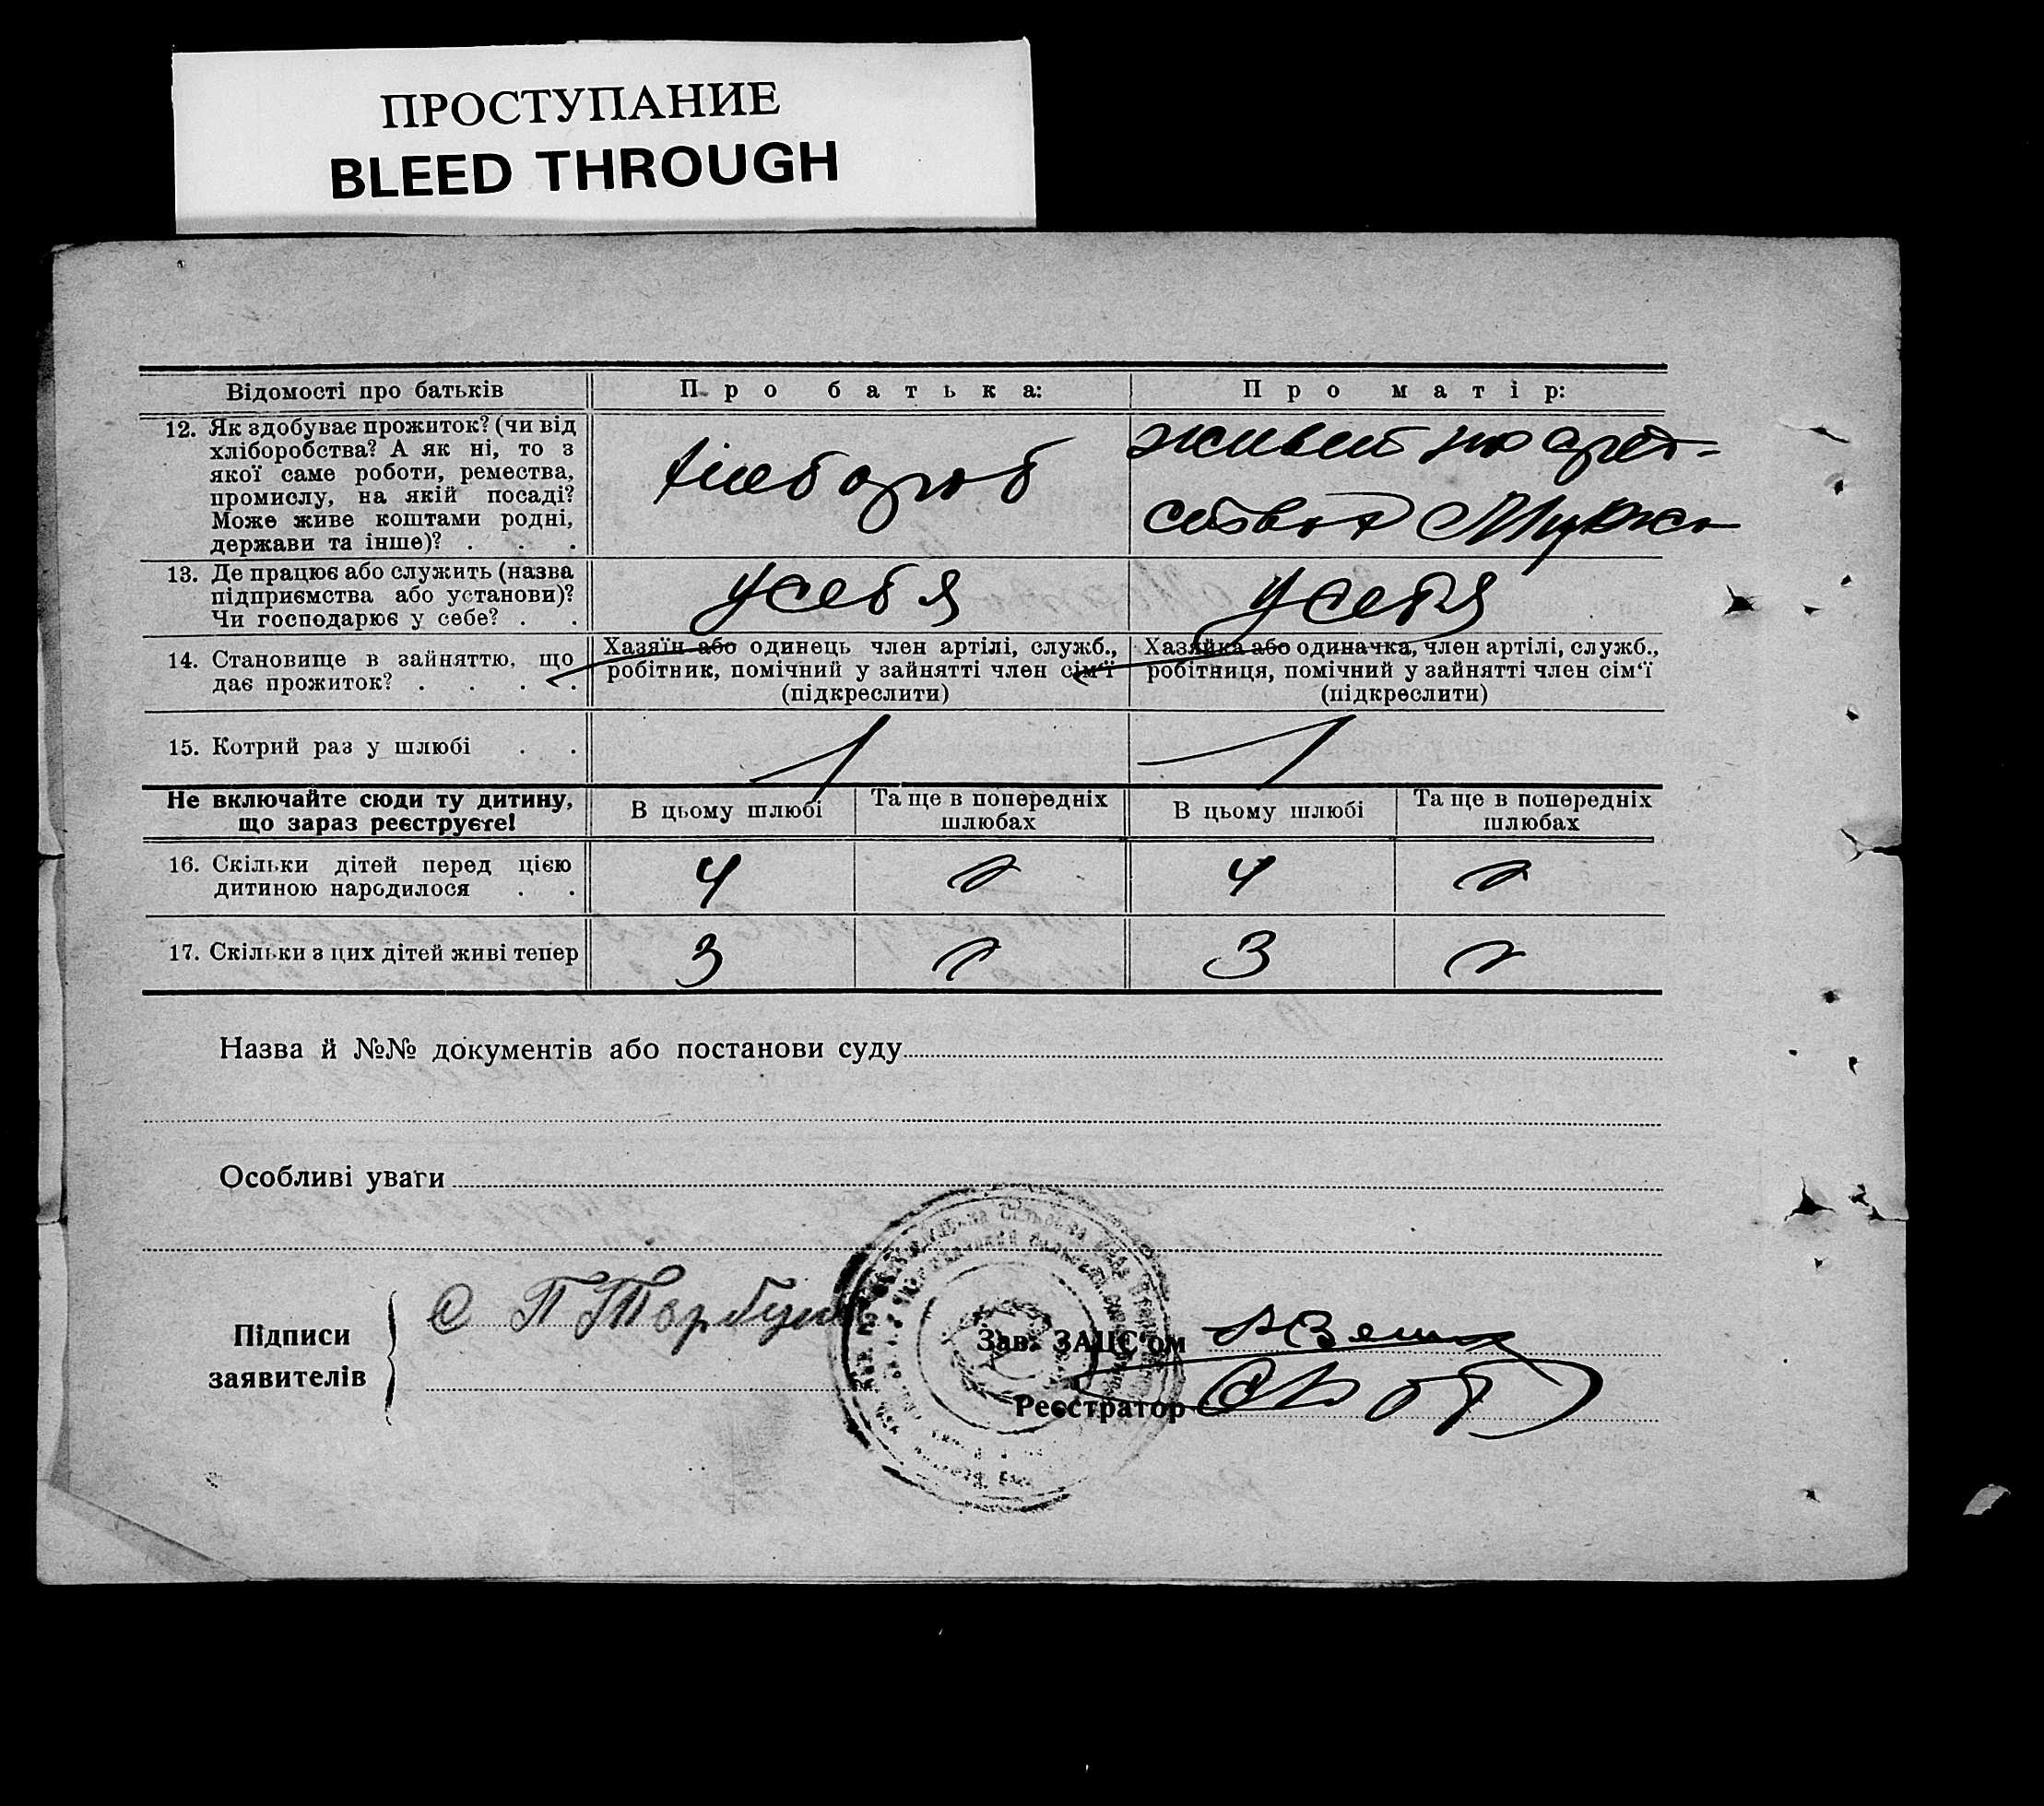 ПРОСТУПАНИЕ
BLEED THROUGH
Відомості про батьків
Про батька:
Про матір:
12. Як здобуває прожиток? (чи від
хліборобства? А як ні, то з
якої саме роботи, ремества,
промислу, на якій посаді?
Може живе коштами родні,
держави та інше)? . . .
хлебороб
живет на сред-
ства мужа
13. Де працює або служить (назва
підприємства або установи)?
Чи господарює у себе? . .
у себя
у себя
14. Становище в зайняттю, що
дає прожиток? . . . .
Хазяїн або одинець член артілі, служб.,
робітник, помічний у зайнятті член сім‘ї
(підкреслити)
Хазяйка або одиначка, член артілі, служб.,
робітниця, помічний у зайнятті член сім‘ї
(підкреслити)
15. Котрий раз у шлюбі . .
1
1
Не включайте сюди ту дитину,
що зараз реєструєте!
В цьому шлюбі
Та ще в попередніх
шлюбах
В цьому шлюбі
Та ще в попередніх
шлюбах
16. Скільки дітей перед цією
дитиною народилося . .
4
4
17. Скільки з цих дітей живі тепер
3
3
Назва й №№ документів або постанови суду
Особливі уваги
Підписи
заявителів
Зав. ЗАЦС‘ом
Реєстратор